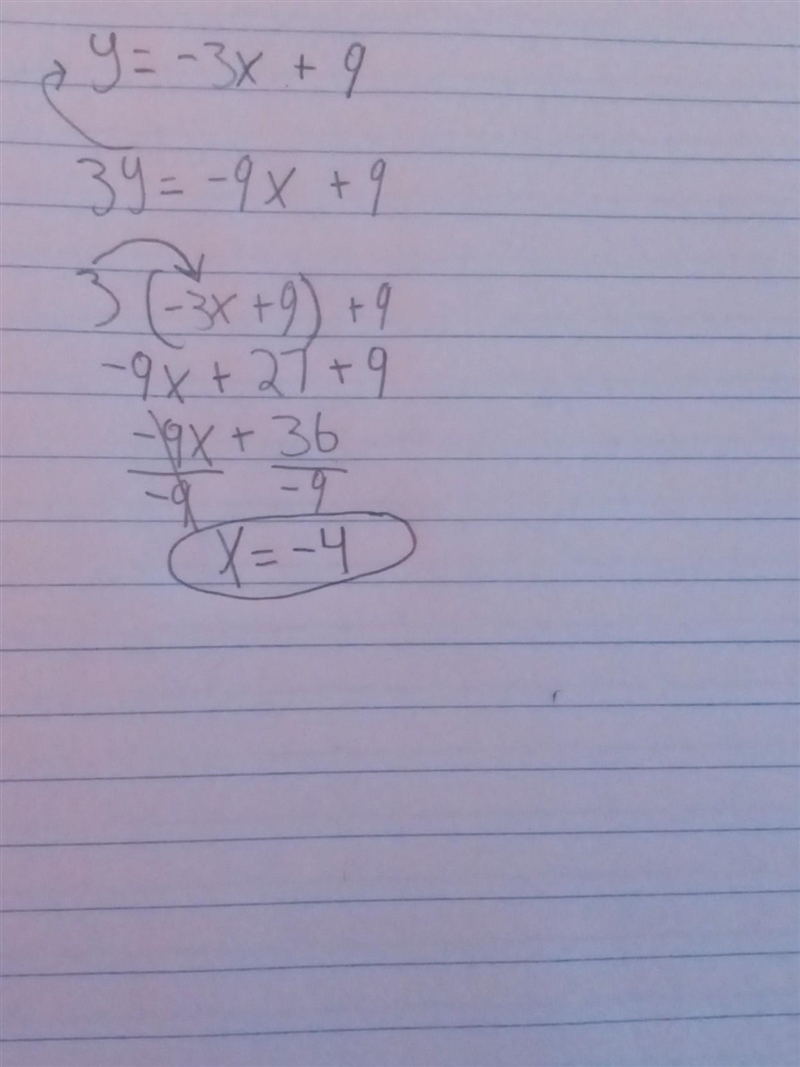 y = -3x + 9
3y = -9x + 9
3 (-3x + 9) + 9
-9x + 27 + 9
-9x + 36
-9 -9
x = -4